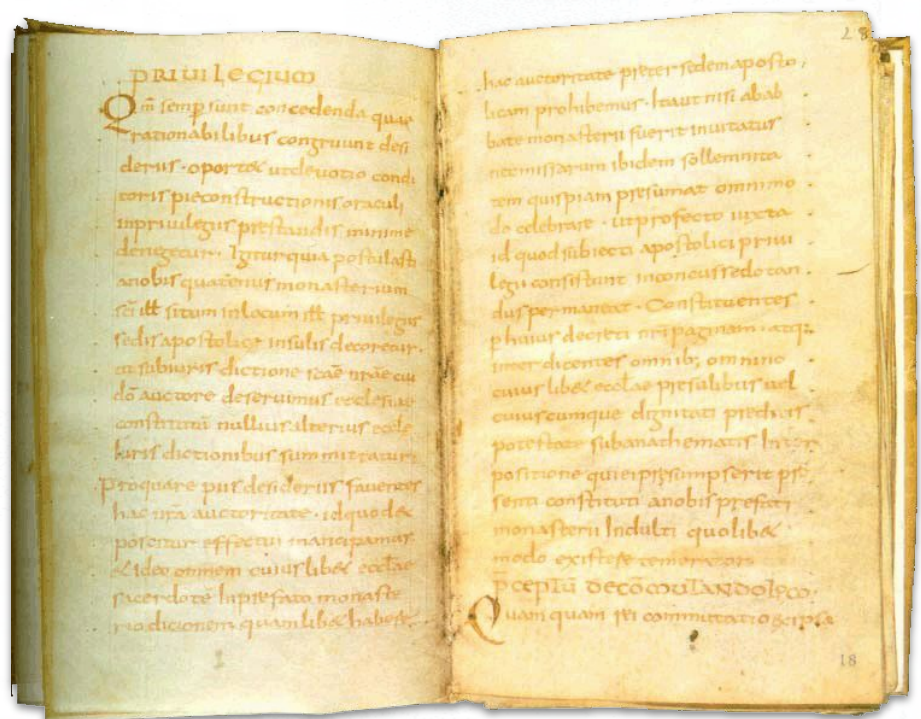 PRIVILEGIUM
Qm̄ semp sunt concedenda quae
rationabilibus congruunt desi
deriis · oportet ut devotio condi
toris piae constructionis oraculi
in privilegiis prestandis minime
denegetur · Igitur quia postulasti
a nobis quatenus monasterium
sci ill situm in locum ill privilegiis
sedis apostolice insulis decoretur ·
ut sub iuris dictione scae nrae cui
dō auctore deservimus ecclesiae
constitutū nullius alterius eccle
iuris dictionibus summittatur
Pro qua re piis desideriis faventes
hac nra auctoritate · id quod ex
poscitur effectui mancipamus
et ideo omnem cuiuslibet ecclae
sacerdotē In prefato monaste
rio dicionem quamlibet habere
28
hac auctoritate preter sedem aposto
licam prohibemus · Ita ut nisi ab ab
bate monasterii fuerit invitatus
nec missarum ibidem sollemnita
tem quispiam presumat omnimo
do celebrare · ut profecto iuxta
id quod subiecti apostolici privi
legii consistunt inconcusse dotan
dus permaneat · Constituentes
p huius decreti nri paginam · atq:
inter dicentes omnib; omnino
cuiuslibet ecclae presulibus vel
cuiuscumque dignitati preditis
potestate sub anathematis Inter
positione qui ei presumpserit pre
senti constituti a nobis prefati
monasterii Indulti quolibet
modo existere temerator
PCEPTŪ DE CŌMUTANDO LOCO ·
Quam quam rei commutatio
18